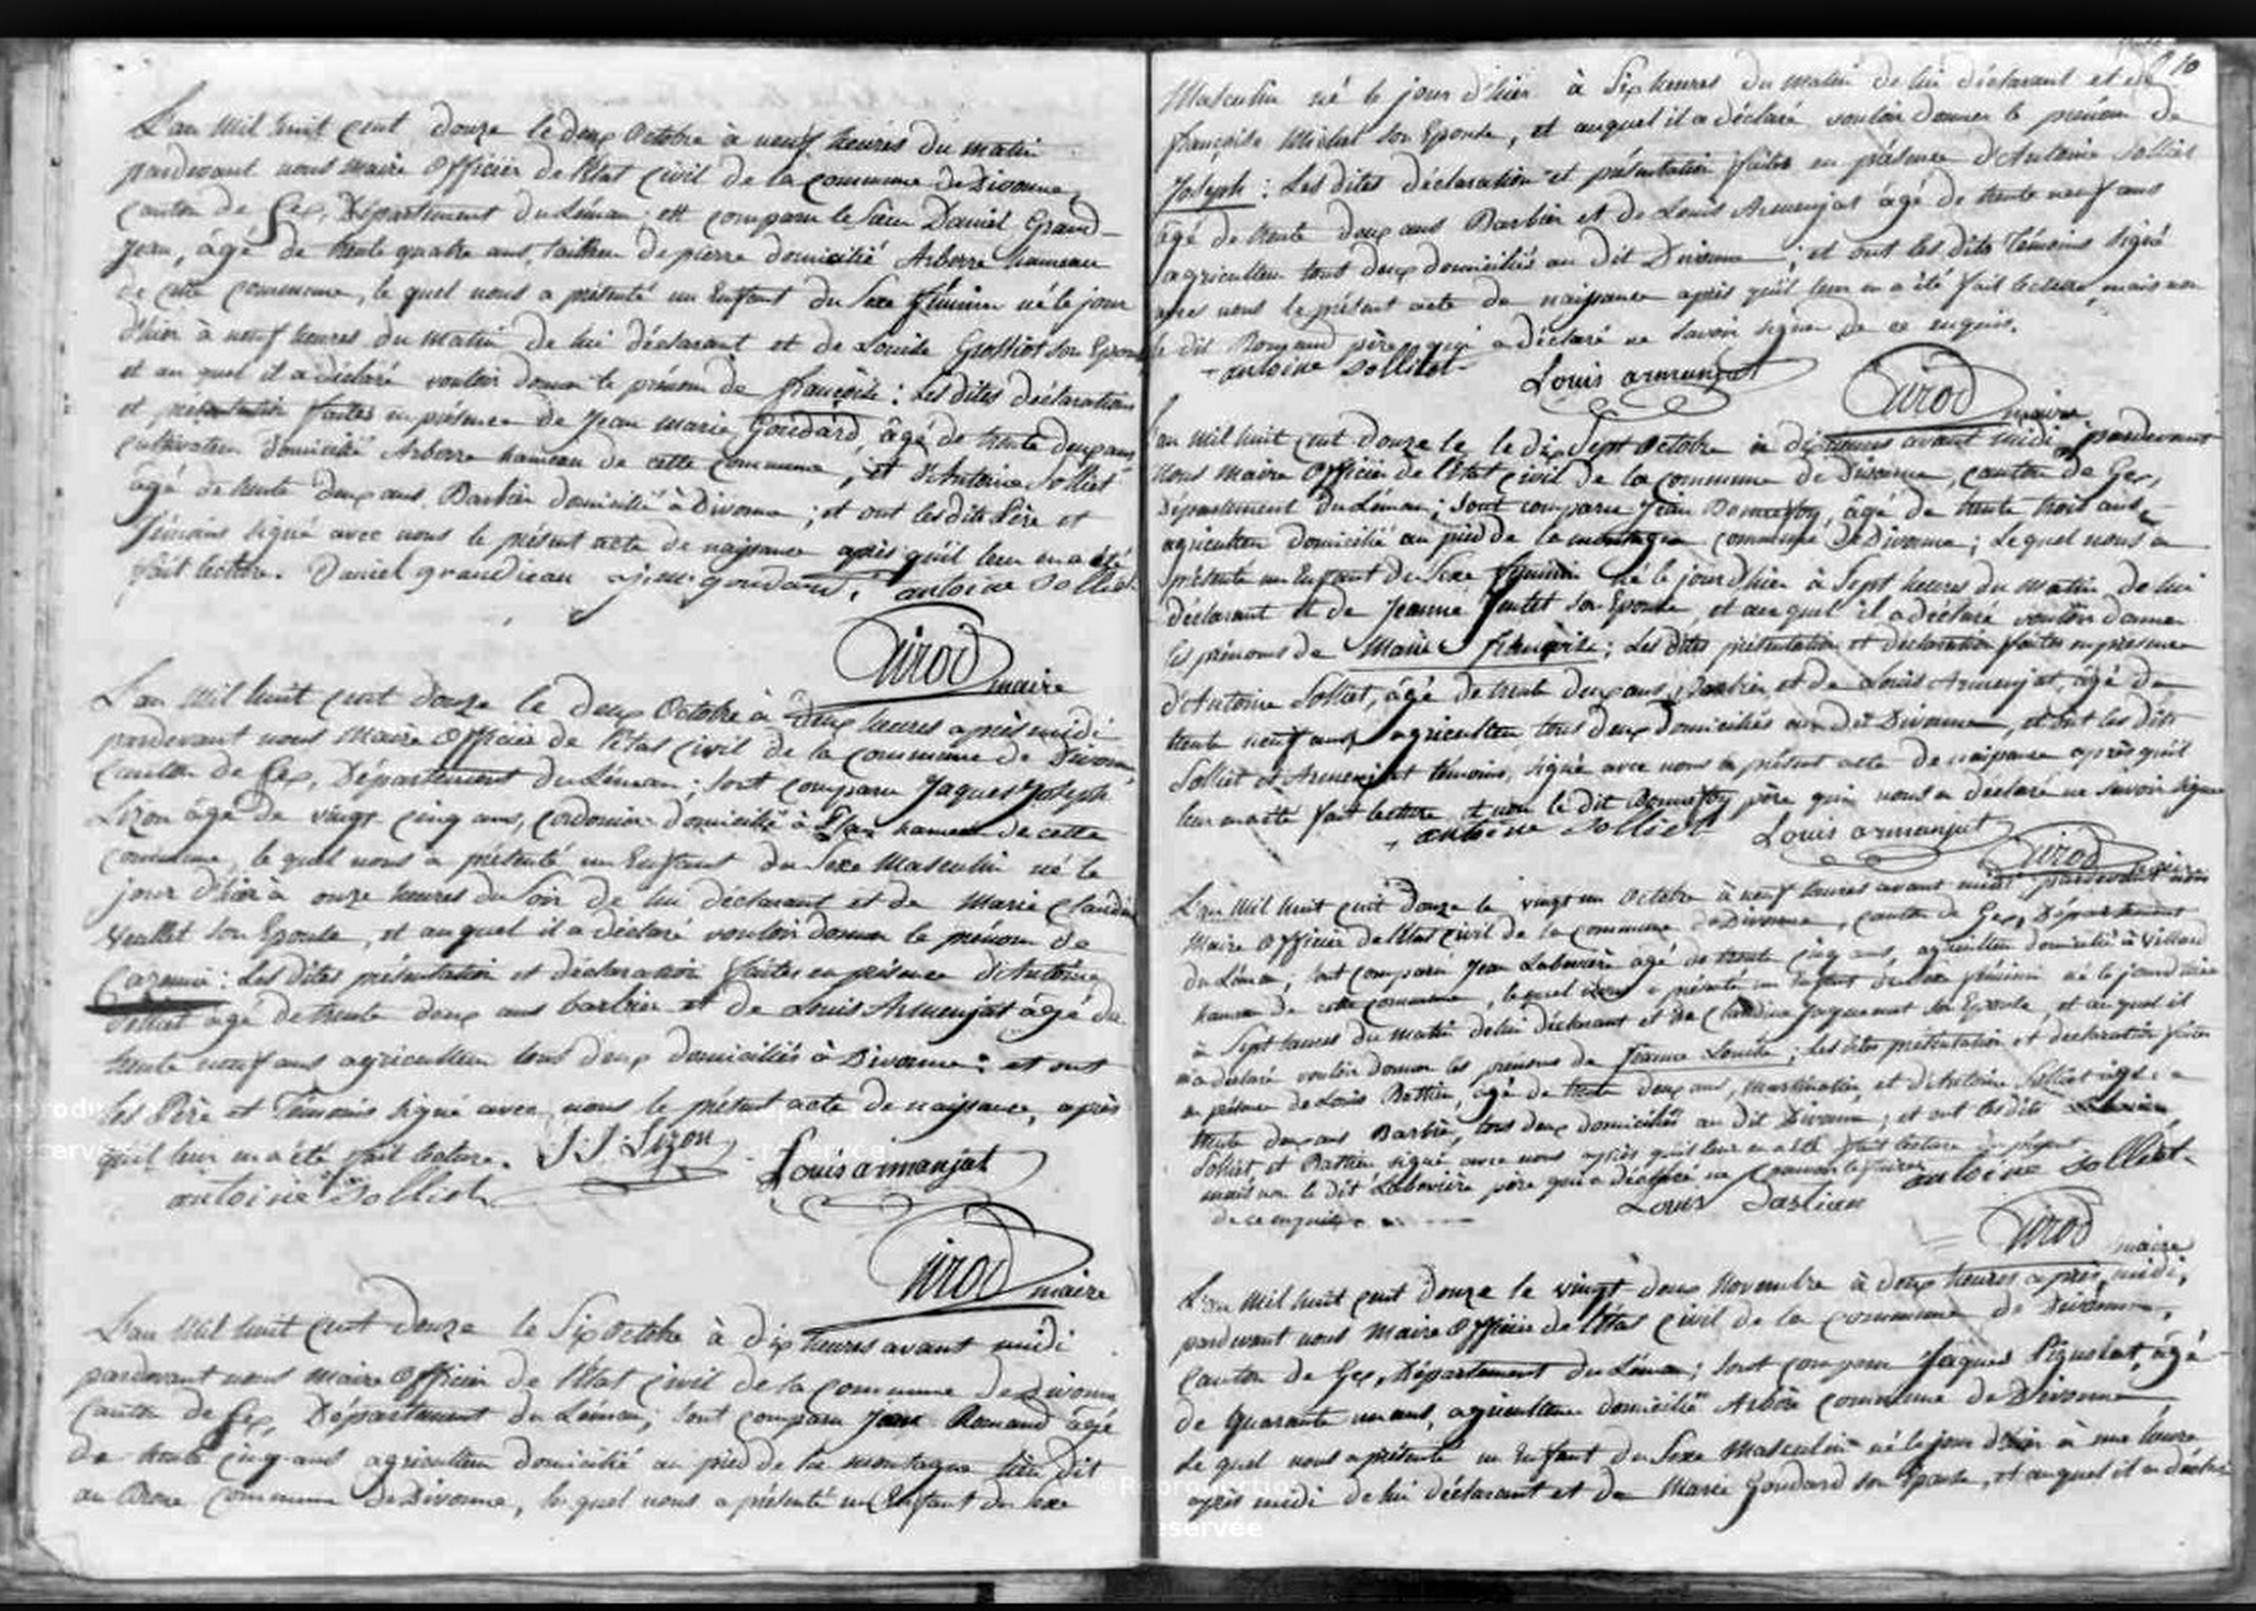 L'an mil huit cent douze le deux Octobre à neuf heures du matin
pardevant nous maire Officier de l'Etat civil de la commune de Divonne,
Canton de Gex, Département du Léman; est comparu le Sieur Daniel Grand-
Jean, âgé de trente quatre ans, tailleur de pierre domicilié Arberre hameau
de cette commune, le quel nous a présenté un Enfant du Sexe féminin né le jour
d'hier à neuf heures du matin de lui déclarant et de Louise Grosfiot son Epouse
et au quel il a déclaré vouloir donner le prénom de françoise : Les dites déclaration
et présentation faites en présence de Jean marie Goudard, âgé de trente deux ans
cultivateur domicilié Arberre hameau de cette commune, et d'Antoine Solliet
âgé de trente deux ans Barbier domicilié à Divonne; et ont les dits Père et
Témoins signé avec nous le présent acte de naissance après qu'il leur en a été
fait lecture. Daniel grandjean j. m. goudard, antoine Solliet
Girod maire
L'an mil huit cent douze le deux Octobre à deux heures après midi
pardevant nous Maire Officier de l'Etat civil de la commune de Divonne,
Canton de Gex, Département du Léman; sont comparu Jaques Joseph
Lizon âgé de vingt cinq ans, cordonier domicilié à hameau de cette
Commune, le quel nous a présenté un Enfant du Sexe Masculin né le
jour d'hier à onze heures du Soir de lui déclarant et de Marie Claudine
Veallet son Epouse, et au quel il a déclaré vouloir donner le prénom de
: Les dites présentation et déclaration faites en présence d'Antoine
Solliet âgé de trente deux ans barbier et de Louis Armenjat âgé de
trente neuf ans agriculteur tous deux domiciliés à Divonne; et ont
les Père et Témoins signé avec nous le présent acte de naissance, après
qu'il leur en a été fait lecture. J. J. Lizon Louis armanjat
antoine Solliet
Girod maire
L'an Mil huit cent douze le Six Octobre à dix heures avant midi
pardevant nous Maire Officier de l'Etat civil de la commune de Divonne
Canton de Gex, Département du Léman; sont comparu Jean Romand âgé
de trente cinq ans agriculteur domicilié au pied de la montagne lieu dit
au commune de Divonne, le quel nous a présenté un Enfant du Sexe
10
Masculin né le jour d'hier à Six heures du matin de lui déclarant et de
françoise Michel son Epouse, et auquel il a déclaré vouloir donner le prénom de
Joseph : Les dites déclaration et présentation faites en présence d'Antoine Solliet
âgé de trente deux ans Barbier et de Louis Armenjat âgé de trente neuf ans
agriculteur tous deux domiciliés au dit Divonne; et ont les dits Témoins signé
avec nous le présent acte de naissance après qu'il leur en a été fait lecture, mais non
le dit Romand père qui a déclaré ne savoir signer de ce enquis.
antoine Solliet Louis armenjat Girod maire
L'an Mil huit cent douze le le dix Sept Octobre à dix heures avant midi pardevant
Nous Maire Officier de l'Etat civil de la commune de Divonne, canton de Gex,
Département du Léman; sont comparu Jean Bonnefoy, âgé de trente trois ans,
agriculteur domicilié au pied de la montagne commune de Divonne; Lequel nous a
présenté un Enfant du Sexe féminin né le jour d'hier à Sept heures du matin de lui
déclarant et de Jeanne son Epouse, et au quel il a déclaré vouloir donner
les prénoms de Marie françoise; Les dites présentation et déclaration faites en présence
d'Antoine Solliet, âgé de trente deux ans, Barbier, et de Louis Armenjat, âgé de
trente neuf ans, agriculteur tous deux domiciliés au dit Divonne, et ont les dits
Solliet et Armenjat témoins, signé avec nous le présent acte de naissance après qu'il
leur en a été fait lecture et non le dit Bonnefoy père qui nous a déclaré ne savoir signer
antoine Solliet Louis armanjat Girod maire
L'an Mil huit cent douze le vingt un Octobre à neuf heures avant midi pardevant nous
Maire Officier de l'Etat civil de la commune de Divonne, canton de Gex, Département
du Léman, sont comparu Jean âgé de trente cinq ans, agriculteur domicilié à Villard
hameau de cette commune, lequel nous a présenté un Enfant du Sexe féminin né le jour d'hier
à Sept heures du matin de lui déclarant et de Claudine Jaquemet son Epouse, et au quel il
a déclaré vouloir donner les prénoms de Jeanne Louise; Les dites présentation et déclaration faites
en présence de Louis Bastien, âgé de trente deux ans, et d'Antoine Solliet âgé de
trente deux ans Barbier, tous deux domiciliés au dit Divonne; et ont les dits
Solliet et Bastien signé avec nous après qu'il leur en a été fait lecture
mais non le dit père qui a déclaré ne
de ce enquis. Louis Bastian antoine Solliet
Girod maire
L'an Mil huit cent douze le vingt deux Novembre à deux heures après midi,
pardevant nous Maire Officier de l'Etat civil de la commune de Divonne,
Canton de Gex, Département du Léman; sont comparu Jaques âgé
de Quarante un ans, agriculteur domicilié Arbère commune de Divonne,
Le quel nous a présenté un Enfant du Sexe Masculin né le jour d'hier à une heure
après midi de lui déclarant et de Marie Goudard son Epouse, et au quel il a déclaré